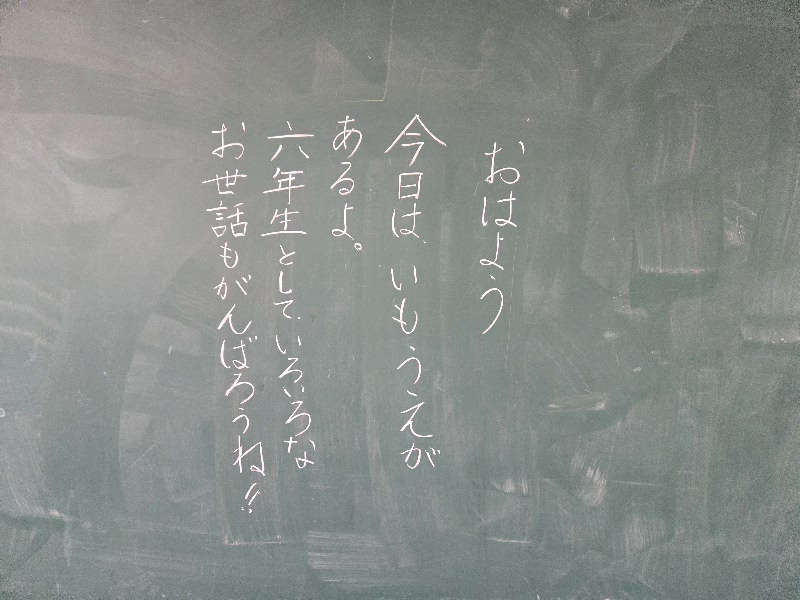 おはよう
今日は、いもうえが
あるよ。
六年生として、いろいろな
お世話もがんばろうね!!